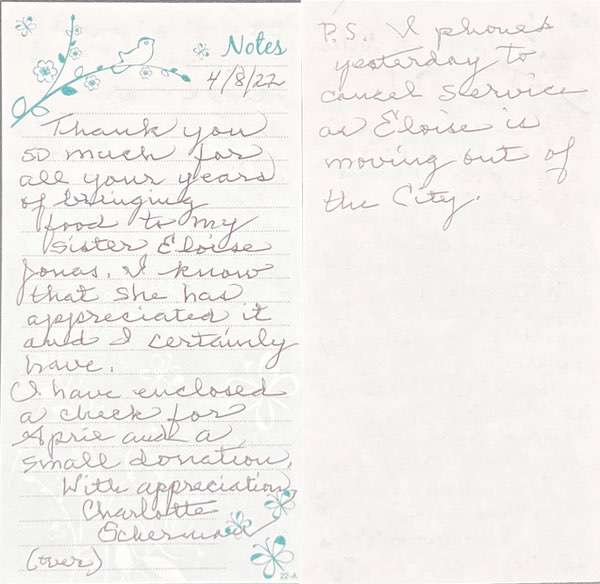 Notes
4/8/22
Thank you
so much for
all your years
of bringing
food to my
sister Eloise
Jonas. I know
that she has
appreciated it
and I certainly
have.
I have enclosed
a check for
April and a
small donation.
With appreciation,
Charlotte
(over)
22-A
P.S. I phoned
yesterday to
cancel service
as Eloise is
moving out of
the City.